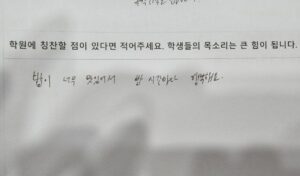 학원에 칭찬할 점이 있다면 적어주세요. 학생들의 목소리는 큰 힘이 됩니다.
밥이 너무 맛있어서 밥 시간마다 행복해요.